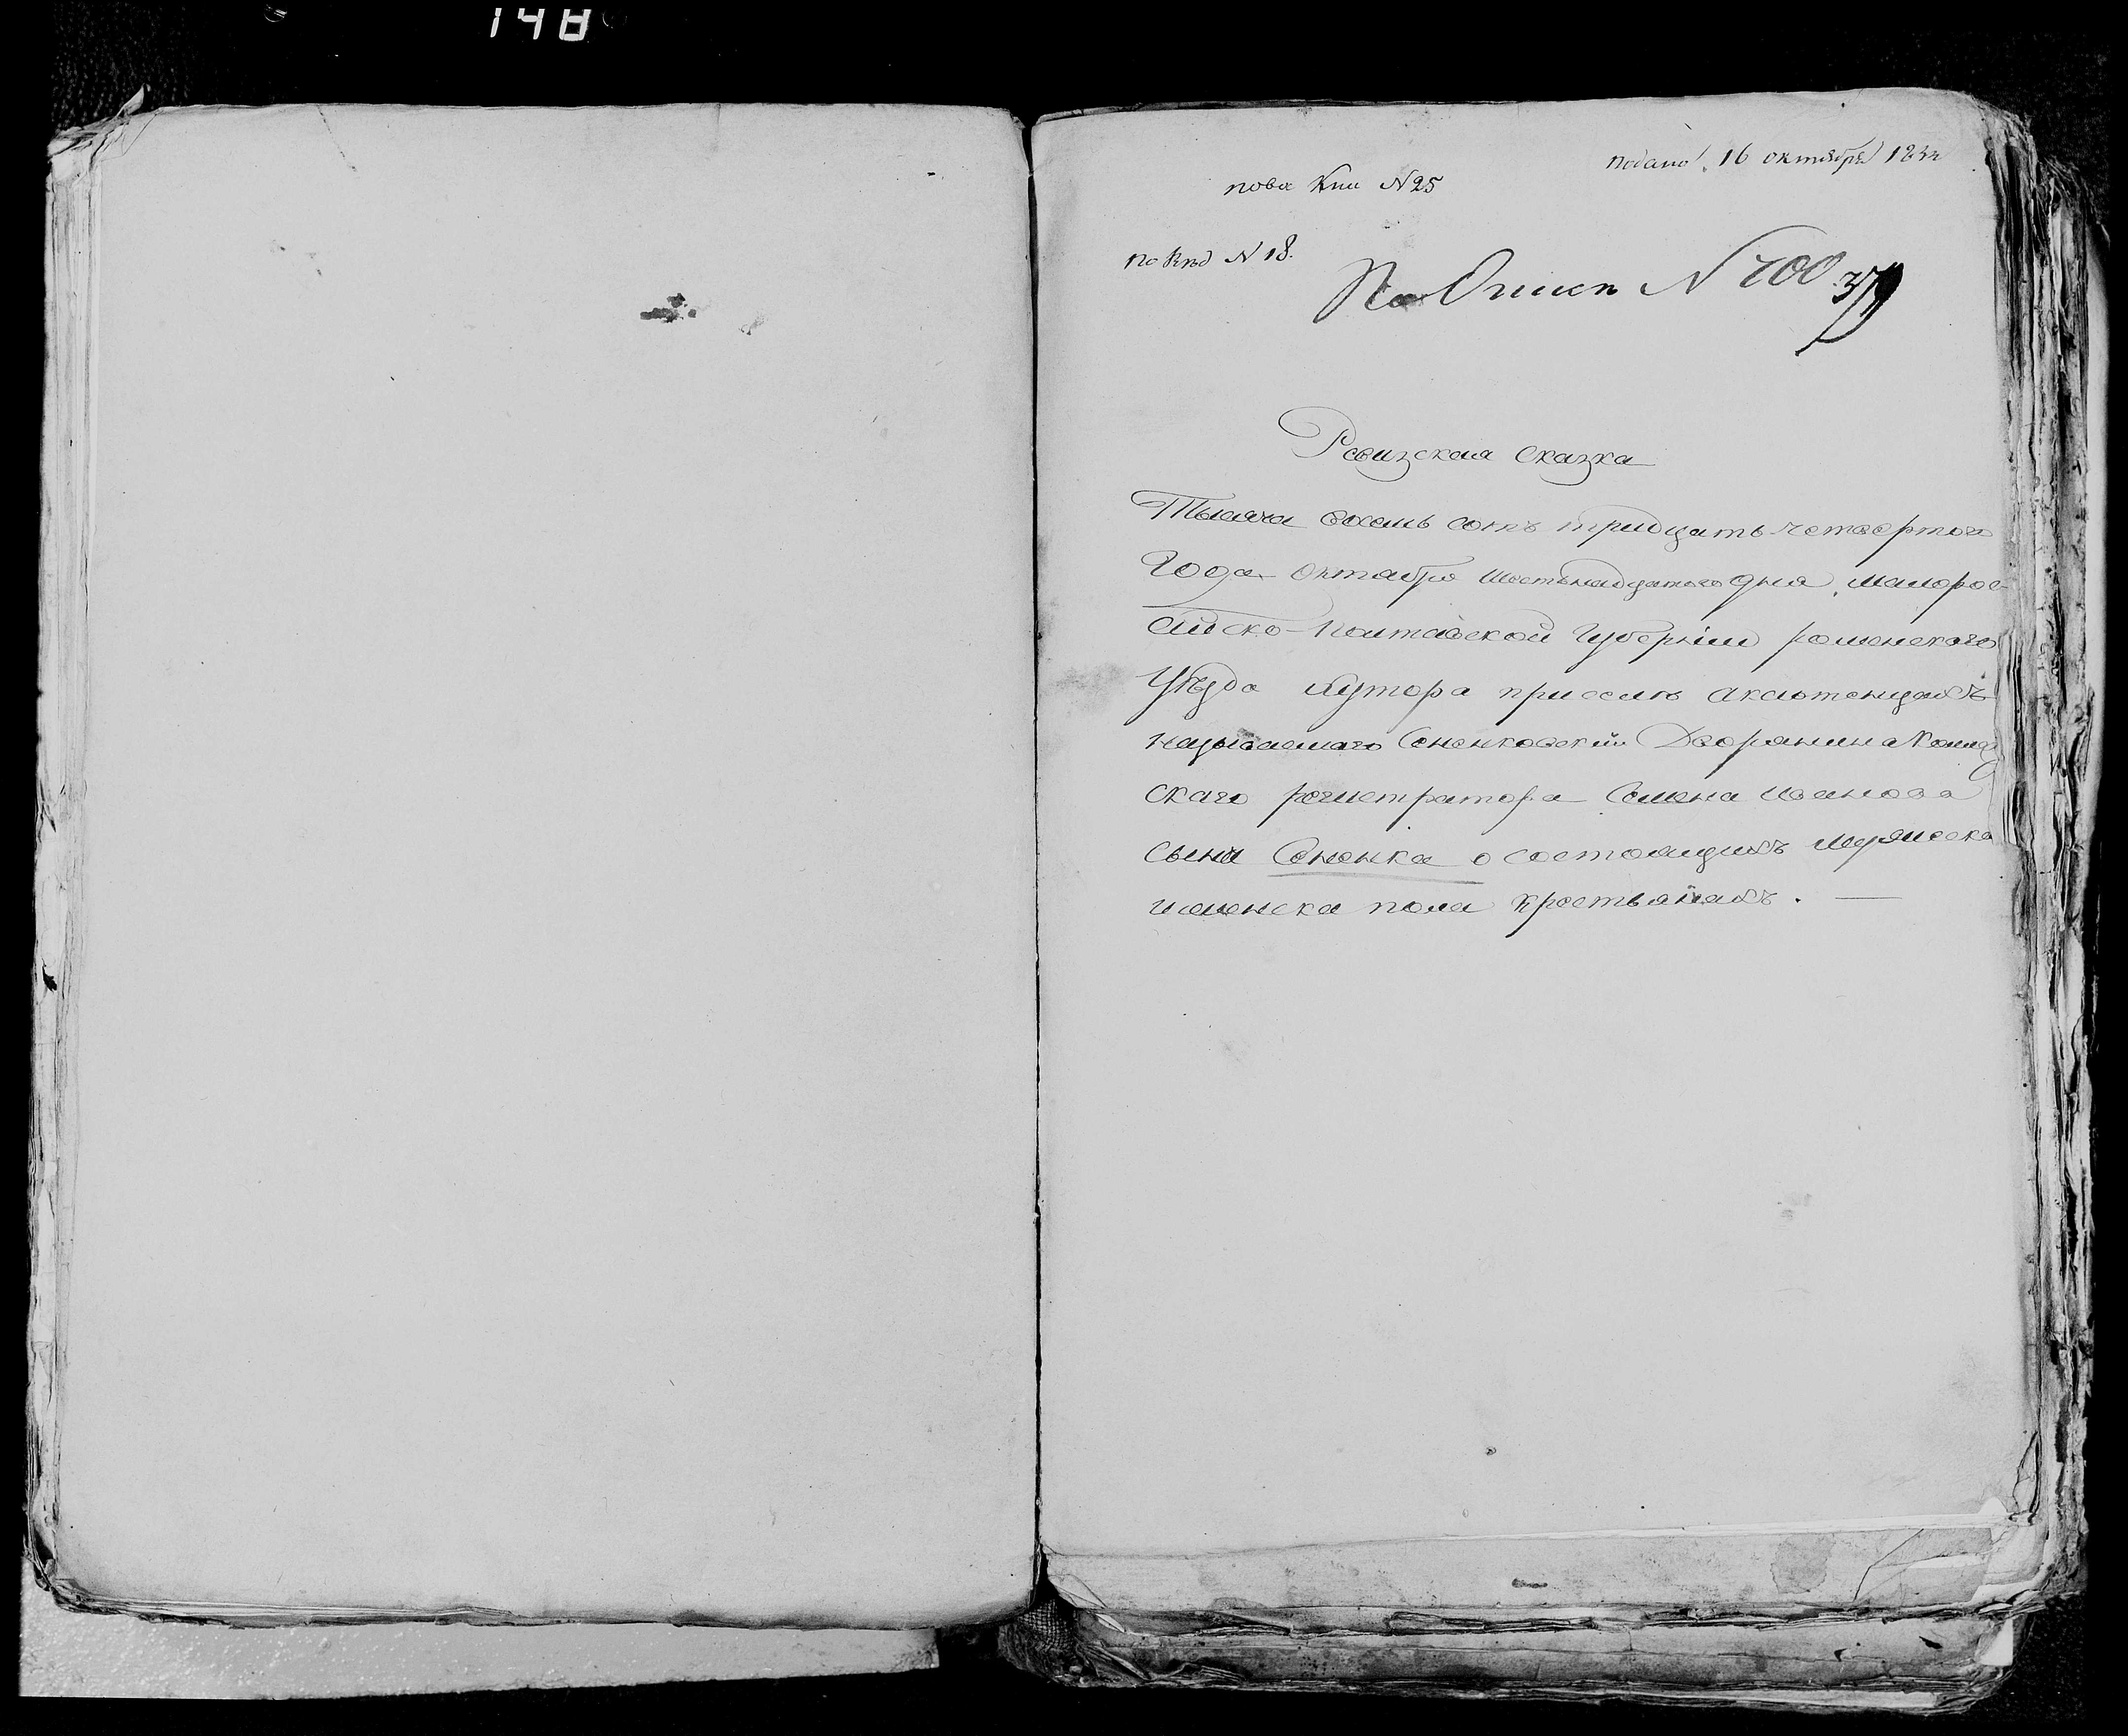 148
подано 16 октября 1834
пова Кни N 25
по Кнѣ N 18.
По Описи N 700 379
Ревизская сказка
Тысяча восемь сотъ тридцать четвертого
Года октября шестьнадцатого дня, малорос-
сийско-Полтавской Губерніи роменского
Уѣзда хутора при селѣ Аксютенцахъ
называемаго Сененковскій Дворянина Коллеж
скаго регистратора Семена Иванова
сына Сененка о состоящихъ мужеска
и женска пола крестьянахъ. —